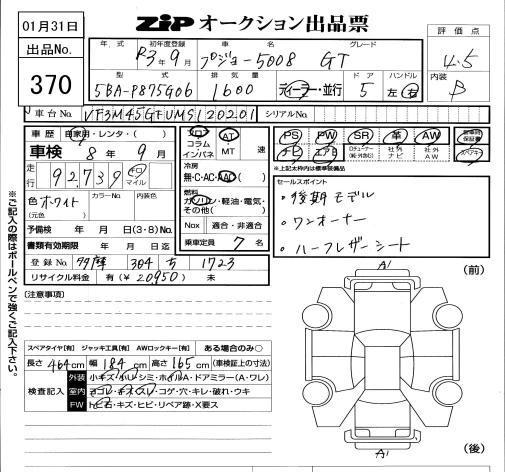 01月31日
出品No.
370
ZiP オークション出品票
評価点
4.5
内装
B
年式 初年度登録 車名 グレード
R3年9月 プジョー5008 GT
型式 排気量 ドア ハンドル
5BA-P875G06 1600 ディーラー・並行 5 左 右
車台No. VF3M45GFUMS120201 シリアルNo.
車歴 自家用・レンタ・( )
車検 8年9月
走行 92,739 キロ マイル
色 ホワイト (元色) カラーNo. 内装色
予備検 年 月 日(3・8)No.
書類有効期限 年 月 日迄
登録No. 304 ち 1723
リサイクル料金 有(¥20950) 未
フロア コラム インパネ AT MT 速
冷房
無・C・AC・AAC( )
燃料
ガソリン・軽油・電気・その他( )
Nox 適合・非適合
乗車定員 7名
PS PW SR 革 AW 新車時保証書
ナビ エアB TV 社外ナビ 社外AW スペアキー
※上記太枠内は標準装備品
セールスポイント
・後期モデル
・ワンオーナー
・ハーフレザーシート
※ご記入の際はボールペンで強くご記入下さい。
(注意事項)
スペアタイヤ[有] ジャッキ工具[有] AWロックキー[有] ある場合のみ○
長さ464cm 幅184cm 高さ165cm (車検証上の寸法)
検査記入
外装 小キズ・小ヘコ・シミ・ホイルA・ドアミラー(A・ワレ)
室内 ヨゴレ・キズ・スレ・コゲ・穴・キレ・破れ・ウキ
FW トビ石・キズ・ヒビ・リペア跡・X要ス
A1
(前)
A1
(後)